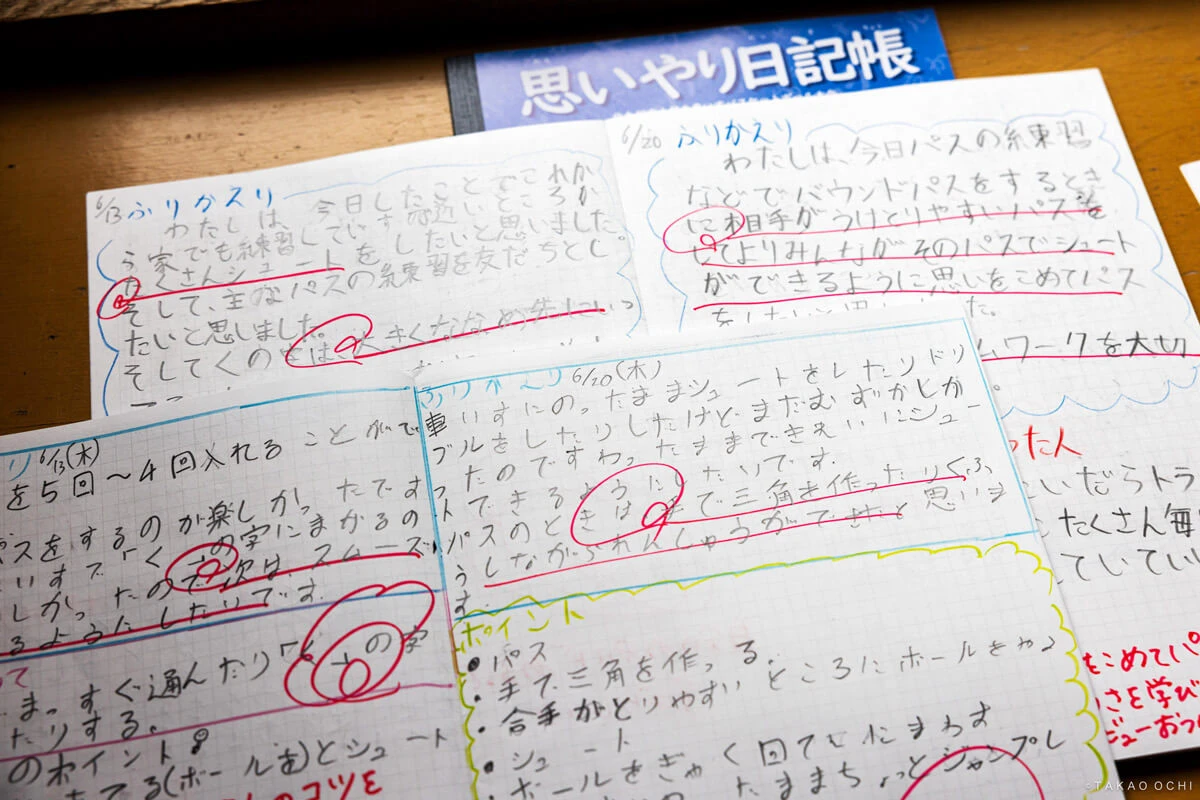 思いやり日記帳
6/13 ふりかえり
わたしは、今日したことでこれか
ら家でも練習して
たくさんシュートをしたいと思いました。
そして、主なパスの練習を友だちとし
たいと思いました。
そしてくの
6/20 ふりかえり
わたしは、今日パスの練習
などでバウンドパスをするとき
に相手がうけとりやすいパスを
してよりみんながそのパスでシュート
ができるように思いをこめてパス
をしたいと思いました。
ムワークを大切
った人
いだらトラ
たくさん毎
ていてい
をこめてパ
さを学び
ビューおつ
り 6/13(木)
を5回〜4回入れる ことがで
パスをするのが楽しかったです
いすで「く」の字にまがるの
しかったので次は、スムーズ
るようにしたいです。
て
まっすぐ通んたり「く」の字
たりする。
のポイント
てる(ボールを)とシュート
のコツを
ふりかえり 6/20(木)
車いすにのったままシュートをしたりドリ
ブルをしたりしたけどまだむずかしか
ったのですわったままできれいにシュー
トできるようにしたいです。
パスのときは手で三角を作ったりくふ
うしながられんしゅうができたと思いま
す。
ポイント
●パス
・手で三角を作っる。
・合手がとりやすいところにボールをやる
●シュート
・ボールをぎゃく回てんにまわす
たままちょっとジャンプし
©TAKAO OCHI